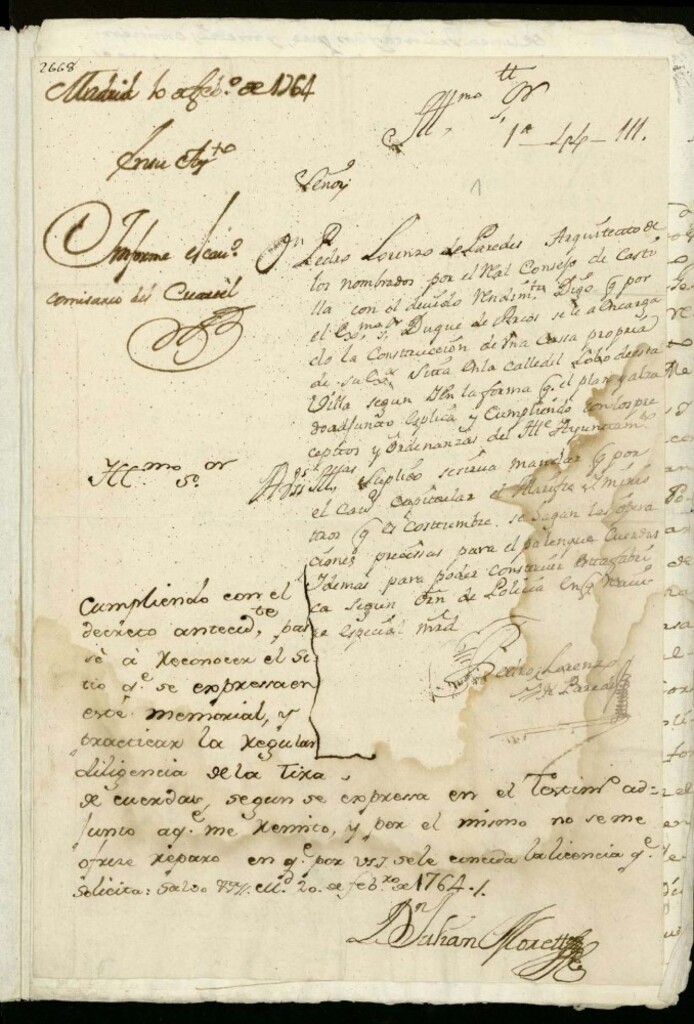 2668
Madrid 10 de feb.º de 1764
Ill.mo S.or
1ª - 44 - 111.
En su Ay.to
Señor
Informe el cav.º
comisario del Cuartel
Dn Pedro Lorenzo de Paredes Arquitecto de
los nombrados por el Real Consejo de Casti
lla con el devido Rendim.to Digo q por
el Ex.mo S.r Duque de Arcos se le a encarga
do la Construccion de una Cassa propria
de su Ex.a sitta en la calle del Lobo de esta
Villa segun y en la forma q. el plan y alza
do adjunto esplica y Cumpliendo con los pre
ceptos y Ordenanzas del Ill.e Ayuntam.to
A V.S. Ill. Suplico se sirva mandar q por
el Cav.º Capitular el Alarife y minis
tros q es Costumbre se hagan las opera
ciones precissas para el palenque Cuerdas
y demas para poder construir esta fabri
ca segun orn de Policia en q Reciv
re especial mrd
Pedro Lorenzo
de Paredes
Ill.mo S.or
Cumpliendo con el
decreto anteced.te, pas
sè à reconocer el si
tio q.e se expressa en
este memorial, y
practicar la regular
diligencia de la tira
de cuerdas, segun se expressa en el Testim.º ad=
junto aq.e me remito, y por el mismo no se me
ofreze reparo en q.e por V.S.I. se le conceda la licencia q.e
solicita: salvo &c. M.d 20. de feb.ro de 1764.
Dn Julian Moret